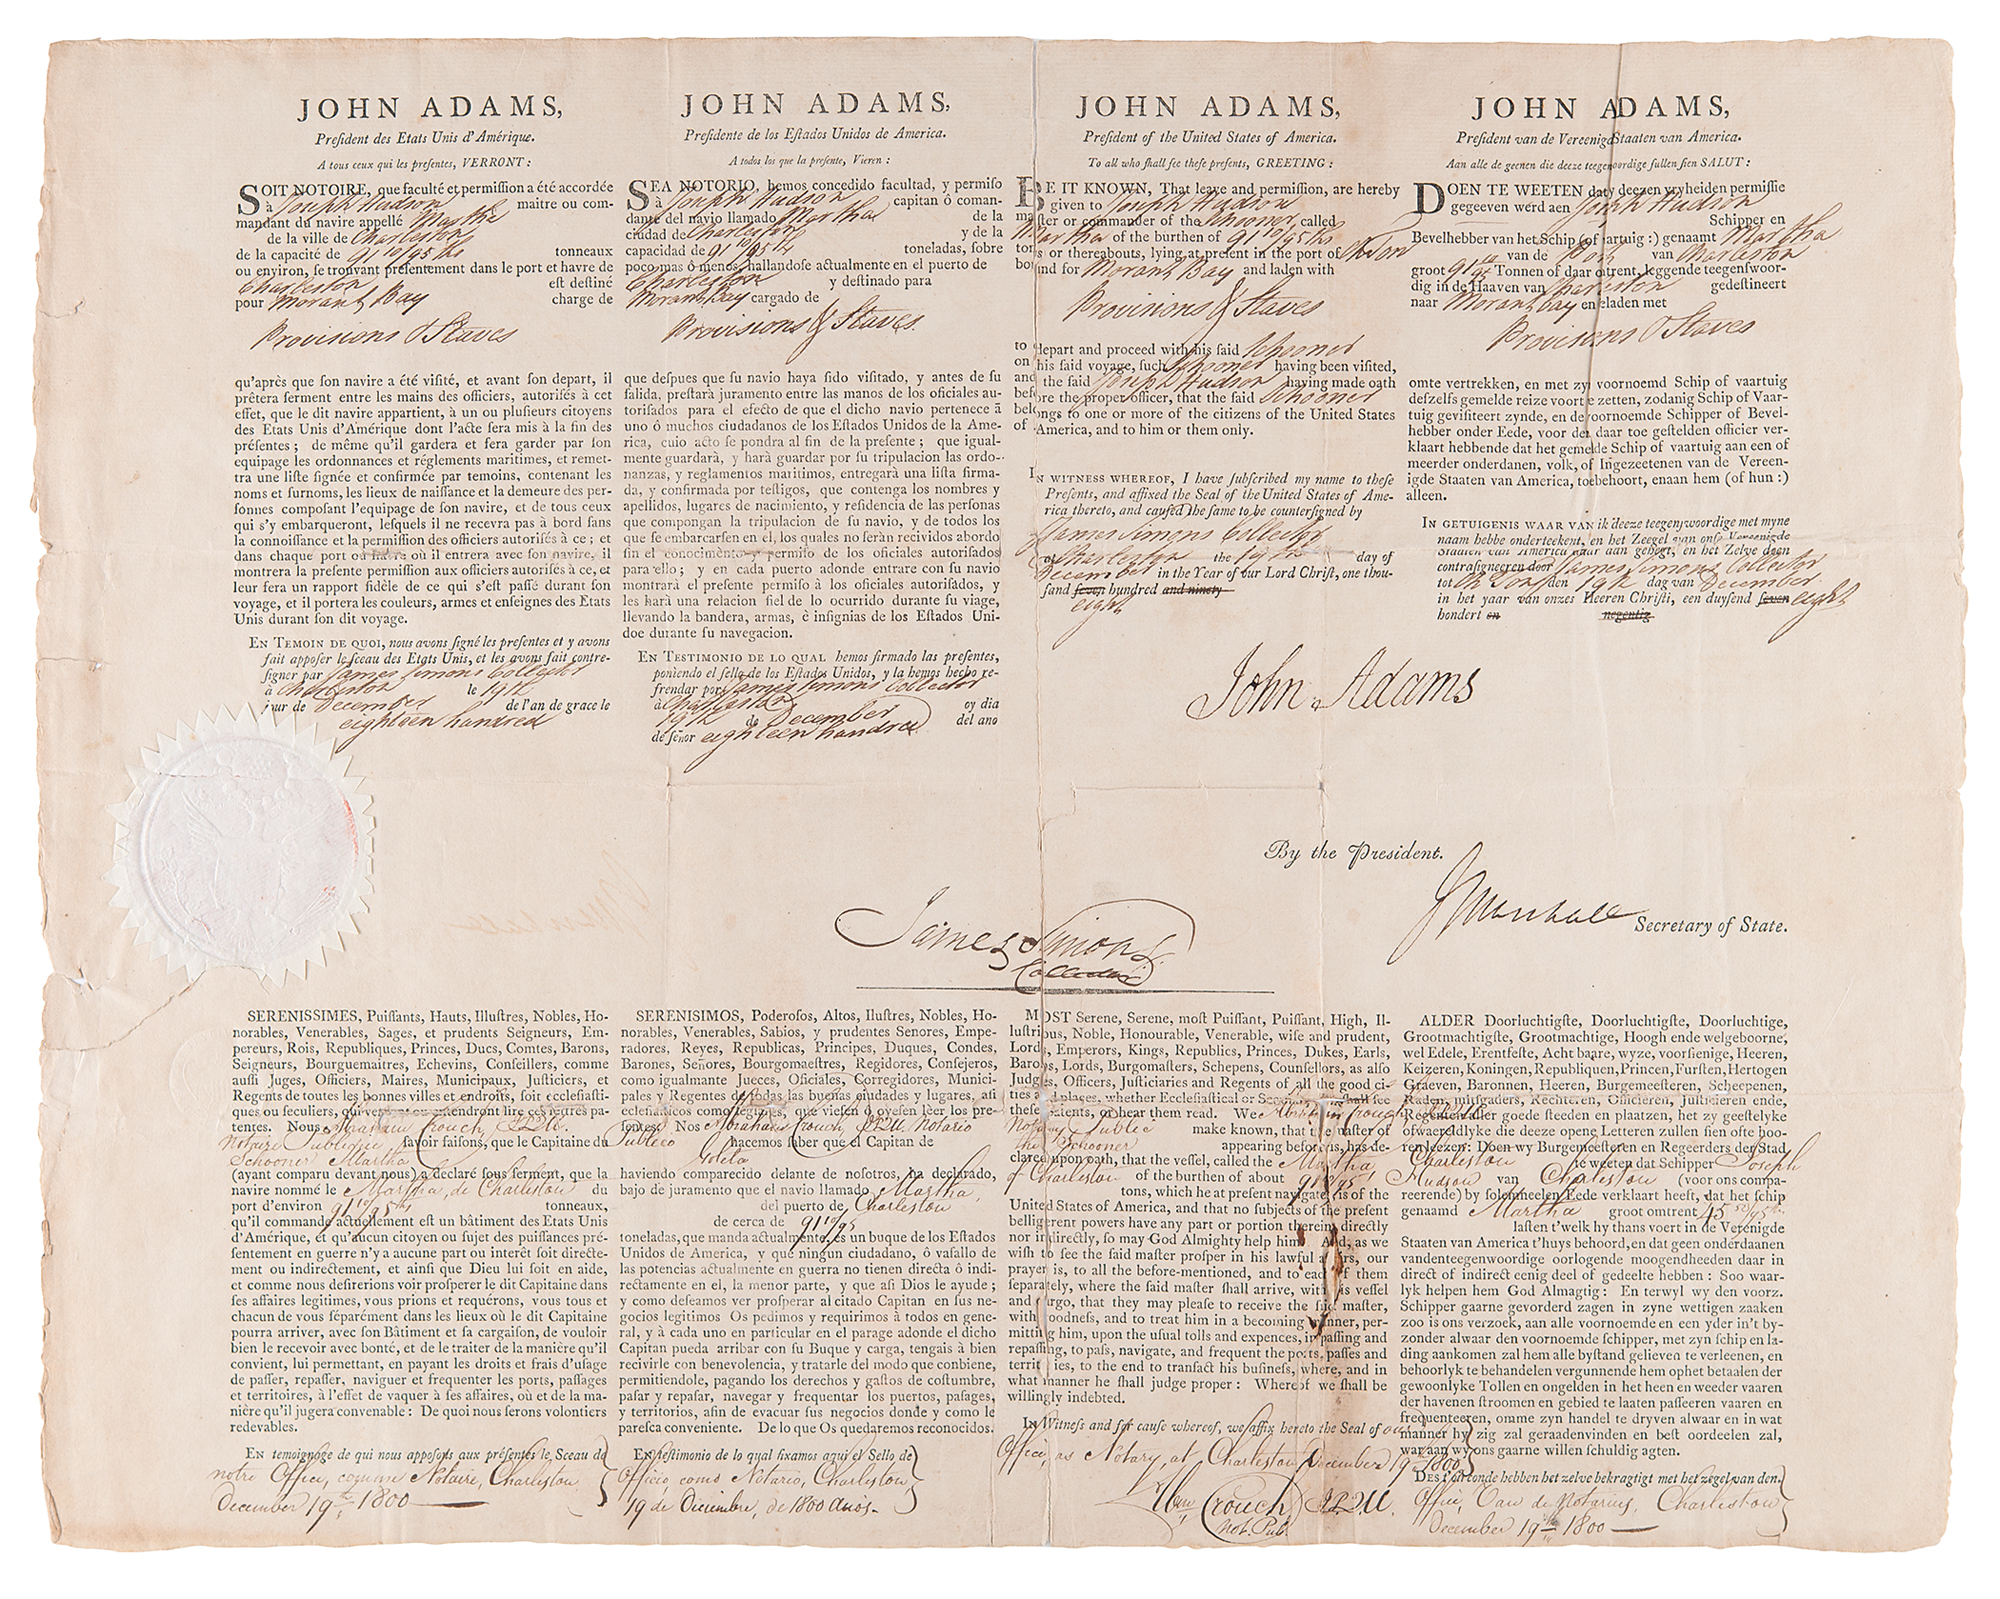 JOHN ADAMS,
President des Etats Unis d'Amérique.
A tous ceux qui les presentes, VERRONT:
SOIT NOTOIRE, que faculté et permission a été accordée
à Joseph Hudson maitre ou com-
mandant du navire appellé Martha
de la ville de Charleston
de la capacité de 91 10/95ths tonneaux
ou environ, se trouvant présentement dans le port et havre de
Charleston est destiné
pour Morant Bay charge de
Provisions & Staves
qu'après que son navire a été visité, et avant son depart, il
prêtera serment entre les mains des officiers, autorisés à cet
effet, que le dit navire appartient, à un ou plusieurs citoyens
des Etats Unis d'Amérique dont l'acte sera mis à la fin des
présentes; de même qu'il gardera et fera garder par son
equipage les ordonnances et réglements maritimes, et remet-
tra une liste signée et confirmée par temoins, contenant les
noms et surnoms, les lieux de naissance et la demeure des per-
sonnes composant l'equipage de son navire, et de tous ceux
qui s'y embarqueront, lesquels il ne recevra pas à bord sans
la connoissance et la permission des officiers autorisés à ce; et
dans chaque port ou havre où il entrera avec son navire, il
montrera la presente permission aux officiers autorisés à ce, et
leur fera un rapport fidèle de ce qui s'est passé durant son
voyage, et il portera les couleurs, armes et enseignes des Etats
Unis durant son dit voyage.
EN TEMOIN DE QUOI, nous avons signé les presentes et y avons
fait apposer le sceau des Etats Unis, et les avons fait contre-
signer par James Simons Collector
à Charleston le 19th
jour de December de l'an de grace le
eighteen hundred
JOHN ADAMS,
Presidente de los Estados Unidos de America.
A todos los que la presente, Vieren:
SEA NOTORIO, hemos concedido facultad, y permiso
à Joseph Hudson capitan ô coman-
dante del navio llamado Martha de la
ciudad de Charleston y de la
capacidad de 91 10/95th toneladas, sobre
poco mas ô menos, hallandose actualmente en el puerto de
Charleston y destinado para
Morant Bay cargado de
Provisions & Staves.
que despues que su navio haya sido visitado, y antes de su
salida, prestarà juramento entre las manos de los oficiales au-
torisados para el efecto de que el dicho navio pertenece ã
uno ô muchos ciudadanos de los Estados Unidos de la Ame-
rica, cuio acto se pondra al fin de la presente; que igual-
mente guardarà, y harà guardar por su tripulacion las ordo-
nanzas, y reglamentos maritimos, entregarà una lista firma-
da, y confirmada por testigos, que contenga los nombres y
apellidos, lugares de nacimiento, y residencia de las personas
que compongan la tripulacion de su navio, y de todos los
que se embarcarsen en el, los quales no seràn recividos abordo
sin el conocimento y permiso de los oficiales autorisados
para ello; y en cada puerto adonde entrare con su navio
montrarà el presente permiso à los oficiales autorisados, y
les harà una relacion fiel de lo ocurrido durante su viage,
llevando la bandera, armas, è insignias de los Estados Uni-
doe durante su navegacion.
EN TESTIMONIO DE LO QUAL hemos firmado las presentes,
poniendo el sello de los Estados Unidos, y la hemos hecho re-
frendar por James Simons Collector
à Charleston oy dia
19th de December del ano
de señor eighteen hundred
JOHN ADAMS,
President of the United States of America.
To all who shall see these presents, GREETING:
BE IT KNOWN, That leave and permission, are hereby
given to Joseph Hudson
master or commander of the Schooner called
Martha of the burthen of 91 10/95ths
tons or thereabouts, lying at present in the port of Ch Ton
bound for Morant Bay and laden with
Provisions & Staves
to depart and proceed with his said Schooner
on his said voyage, such Schooner having been visited,
and the said Joseph Hudson having made oath
before the proper officer, that the said Schooner
belongs to one or more of the citizens of the United States
of America, and to him or them only.
IN WITNESS WHEREOF, I have subscribed my name to these
Presents, and affixed the Seal of the United States of Ame-
rica thereto, and caused the same to be countersigned by
James Simons Collector
of Charleston the 19th day of
December in the Year of our Lord Christ, one thou-
sand seven hundred and ninety
eight
JOHN ADAMS,
President van de Vereenigd Staaten van America.
Aan alle de geenen die deeze teegenwoordige sullen sien SALUT:
DOEN TE WEETEN dat y deezen vryheiden permissie
gegeeven werd aen Joseph Hudson
Schipper en
Bevelhebber van het Schip (of vartuig:) genaamt Martha
van de Port van Charleston
groot 91 10/95 Tonnen of daar omtrent, leggende teegenswoor-
dig in de Haaven van Charleston gedestineert
naar Morant Bay en beladen met
Provisions & Staves
omte vertrekken, en met zyn voornoemd Schip of vaartuig
desselfs gemelde reize voort te zetten, zodanig Schip of Vaar-
tuig gevisiteert zynde, en de voornoemde Schipper of Bevel-
hebber onder Eede, voor den daar toe gestelden officier ver-
klaart hebbende dat het gemelde Schip of vaartuig aan een of
meerder onderdanen, volk, of Ingezeetenen van de Vereen-
igde Staaten van America, toebehoort, enaan hem (of hun:)
alleen.
IN GETUIGENIS WAAR VAN ik deeze teegenywoordige met myne
naam hebbe onderteekent, en het Zeegel van onse Vereenigde
Staaten van America daar aan gehegt, en het Zelve doen
contrasigneeren door James Simons Collector
tot Ch Ton den 19th dag van December
in het yaar van onzes Heeren Christi, een duysend seven eight
hondert en negentig
John Adams
By the President.
J Marshall Secretary of State.
James Simons
Collector
SERENISSIMES, Puissants, Hauts, Illustres, Nobles, Ho-
norables, Venerables, Sages, et prudents Seigneurs, Em-
pereurs, Rois, Republiques, Princes, Ducs, Comtes, Barons,
Seigneurs, Bourguemaitres, Echevins, Conseillers, comme
aussi Juges, Officiers, Maires, Municipaux, Justiciers, et
Regents de toutes les bonnes villes et endroits, soit ecclesiasti-
ques ou seculiers, qui verront ou entendront lire ces lettres pa-
tentes. Nous Abraham Crouch, J.Q.U.
Notaire Publique savoir faisons, que le Capitaine du
Schooner Martha
(ayant comparu devant nous) a declaré sous serment, que la
navire nommé le Martha, de Charleston du
port d'environ 91 10/95ths tonneaux,
qu'il commande actuellement est un bâtiment des Etats Unis
d'Amérique, et qu'aucun citoyen ou sujet des puissances pré-
sentement en guerre n'y a aucune part ou interêt soit directe-
ment ou indirectement, et ainsi que Dieu lui soit en aide,
et comme nous desirerions voir prosperer le dit Capitaine dans
ses affaires legitimes, vous prions et requérons, vous tous et
chacun de vous séparément dans les lieux où le dit Capitaine
pourra arriver, avec son Bâtiment et sa cargaison, de vouloir
bien le recevoir avec bonté, et de le traiter de la manière qu'il
convient, lui permettant, en payant les droits et frais d'usage
de passer, repasser, naviguer et frequenter les ports, passages
et territoires, à l'effet de vaquer à ses affaires, où et de la ma-
nière qu'il jugera convenable: De quoi nous serons volontiers
redevables.
EN temoignage de qui nous apposons aux présentes le Sceau de
notre Office, comme Notaire, Charleston
December 19th 1800
SERENISIMOS, Poderosos, Altos, Ilustres, Nobles, Ho-
norables, Venerables, Sabios, y prudentes Senores, Empe-
radores, Reyes, Republicas, Principes, Duques, Condes,
Barones, Señores, Bourgomaestres, Regidores, Consejeros,
como igualmante Jueces, Oficiales, Corregidores, Munici-
pales y Regentes de todas las buenas ciudades y lugares, asi
eclesiásticos como seglares, que viesen ô oyesen leer los pre-
sentes: Nos Abraham Crouch, J.Q.U. Notario
Publico hacemos saber que el Capitan de
Goleta
haviendo comparecido delante de nosotros, ha declarado,
bajo de juramento que el navio llamado Martha,
del puerto de Charleston
de cerca de 91 10/95
toneladas, que manda actualmente, es un buque de los Estados
Unidos de America, y que ningun ciudadano, ô vasallo de
las potencias actualmente en guerra no tienen directa ô indi-
rectamente en el, la menor parte, y que asi Dios le ayude;
y como deseamos ver prosperar al citado Capitan en sus ne-
gocios legitimos Os pedimos y requirimos à todos en gene-
ral, y à cada uno en particular en el parage adonde el dicho
Capitan pueda arribar con su Buque y carga, tengais à bien
recivirle con benevolencia, y tratarle del modo que conbiene,
permitiendole, pagando los derechos y gastos de costumbre,
pasar y repasar, navegar y frequentar los puertos, pasages,
y territorios, afin de evacuar sus negocios donde y como le
paresca conveniente. De lo que Os quedaremos reconocidos.
En testimonio de lo qual fixamos aqui el Sello de
Officio, como Notario, Charleston
19 de Diciembre, de 1800 años.
MOST Serene, Serene, most Puissant, Puissant, High, Il-
lustrious, Noble, Honourable, Venerable, wise and prudent,
Lords, Emperors, Kings, Republics, Princes, Dukes, Earls,
Barons, Lords, Burgomasters, Schepens, Counsellors, as also
Judges, Officers, Justiciaries and Regents of all the good ci-
ties and places, whether Ecclesiastical or Secular shall see
these patents, or hear them read. We Abraham Crouch J.Q.U.
Notary Public make known, that the master of
the Schooner appearing before us, has de-
clared upon oath, that the vessel, called the Martha,
of Charleston of the burthen of about 91 10/95
tons, which he at present navigates is of the
United States of America, and that no subjects of the present
belligerent powers have any part or portion therein, directly
nor indirectly, so may God Almighty help him. And, as we
wish to see the said master prosper in his lawful affairs, our
prayer is, to all the before-mentioned, and to each of them
separately, where the said master shall arrive, with his vessel
and cargo, that they may please to receive the said master,
with goodness, and to treat him in a becoming manner, per-
mitting him, upon the usual tolls and expences, in passing and
repassing, to pass, navigate, and frequent the ports, passes and
territories, to the end to transact his business, where, and in
what manner he shall judge proper: Whereof we shall be
willingly indebted.
IN Witness and for cause whereof, we affix hereto the Seal of our
Office, as Notary, at Charleston December 19 1800
Abm Crouch J.Q.U.
Not. Pub.
ALDER Doorluchtigste, Doorluchtigste, Doorluchtige,
Grootmachtigste, Grootmachtige, Hoogh ende welgeboorne,
wel Edele, Erentfeste, Acht baare, wyze, voorsienige, Heeren,
Keizeren, Koningen, Republiquen, Princen, Fursten, Hertogen
Graeven, Baronnen, Heeren, Burgemeesteren, Scheepenen,
Raden, mitsgaders, Rechteren, Officieren, Justicieren ende,
Regenten aller goede steeden en plaatzen, het zy geestelyke
ofwaereldlyke die deeze opene Letteren zullen sien ofte hoo-
ren leezen: Doen wy Burgemeesteren en Regeerders der Stad
Charleston te weeten dat Schipper Joseph
Hudson van Charleston (voor ons compa-
reerende) by solemneelen Eede verklaart heeft, dat het schip
genaamd Martha groot omtrent 45 50/95ths
lasten t'welk hy thans voert in de Verenigde
Staaten van America t'huys behoord, en dat geen onderdaanen
vandenteegenwoordige oorlogende moogendheeden daar in
direct of indirect eenig deel of gedeelte hebben: Soo waar-
lyk helpen hem God Almagtig: En terwyl wy den voorz.
Schipper gaarne gevorderd zagen in zyne wettigen zaaken
zoo is ons verzoek, aan alle voornoemde en een yder in't by-
zonder alwaar den voornoemde schipper, met zyn schip en la-
ding aankomen zal hem alle bystand gelieven te verleenen, en
behoorlyk te behandelen vergunnende hem ophet betaalen der
gewoonlyke Tollen en ongelden in het heen en weeder vaaren
der havenen stroomen en gebied te laaten passeeren vaaren en
frequenteeren, omme zyn handel te dryven alwaar en in wat
manner hy zig zal geraadenvinden en best oordeelen zal,
waar aan wy ons gaarne willen schuldig agten.
Des t'oirconde hebben het zelve bekragtigt met het zegel van den.
Office, Van de Notarius, Charleston
December 19th 1800